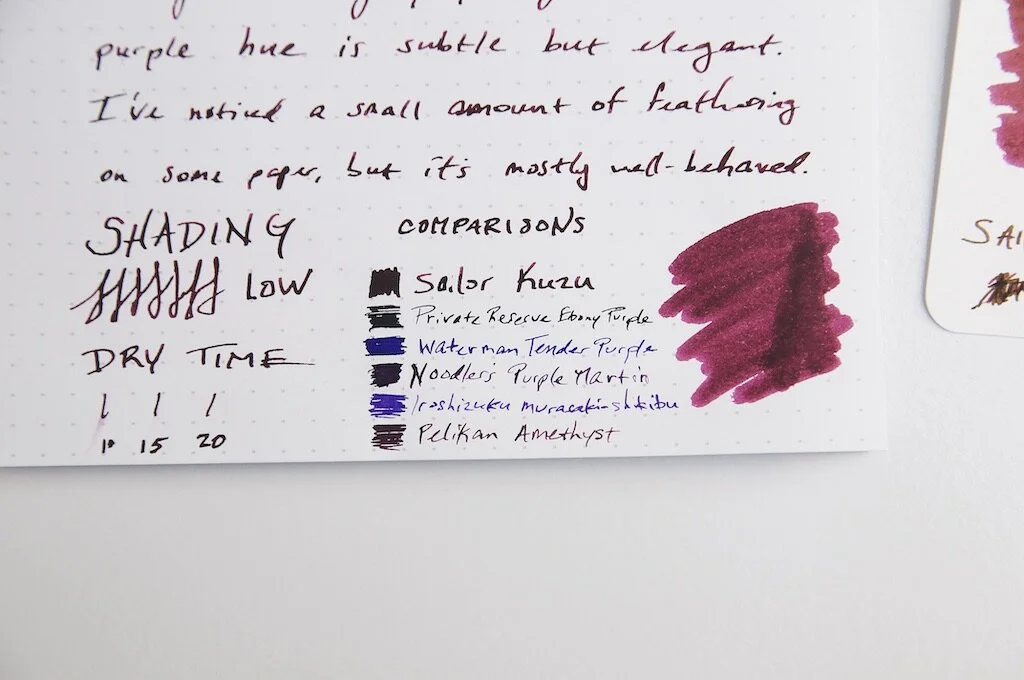 purple hue is subtle but elegant.
I've noticed a small amount of feathering
on some paper, but it's mostly well-behaved.
SHADING
LOW
DRY TIME
10 15 20
COMPARISONS
Sailor Kuzu
Private Reserve Ebony Purple
Waterman Tender Purple
Noodler's Purple Martin
Iroshizuku murasaki-shikibu
Pelikan Amethyst
SAI